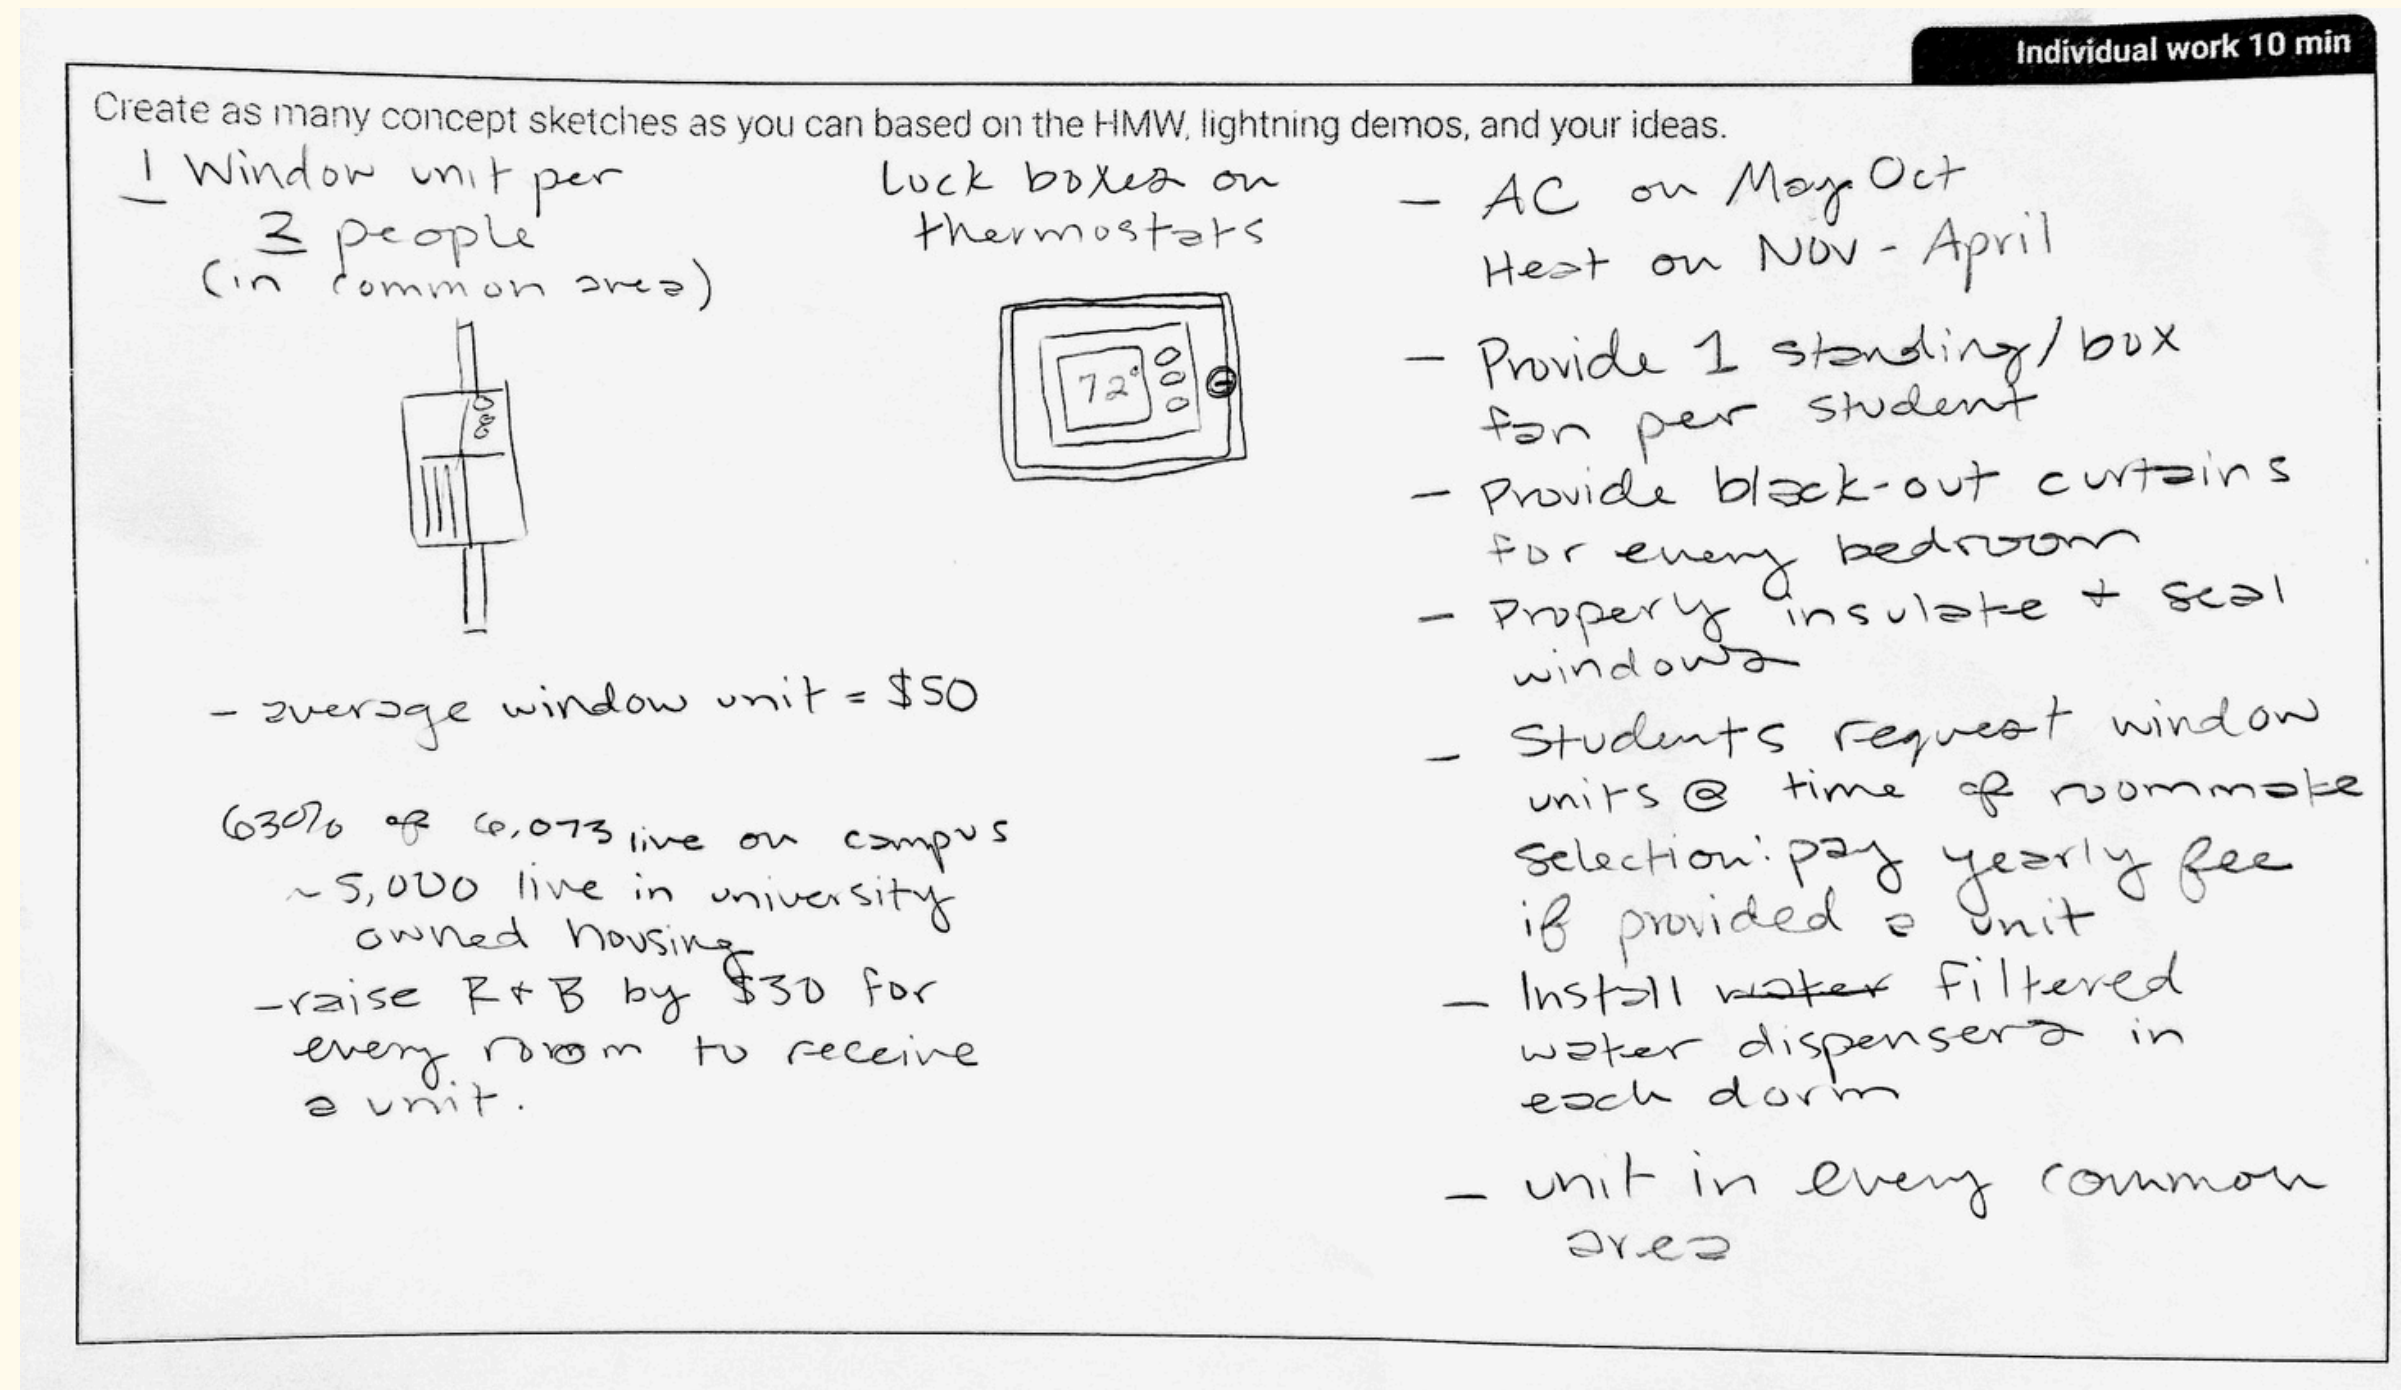 Individual work 10 min
Create as many concept sketches as you can based on the HMW, lightning demos, and your ideas.
1 Window unit per
3 people
(in common area)
- average window unit = $50
63% of 6,073 live on campus
~5,000 live in university
owned housing
- raise R+B by $30 for
every room to receive
a unit.
Lock boxes on
thermostats
72°
- AC on May-Oct
Heat on Nov - April
- Provide 1 standing/box
fan per student
- Provide black-out curtains
for every bedroom
- Properly insulate + seal
windows
- Students request window
units @ time of roommate
selection: pay yearly fee
if provided a unit
- Install water filtered
water dispensers in
each dorm
- unit in every common
area